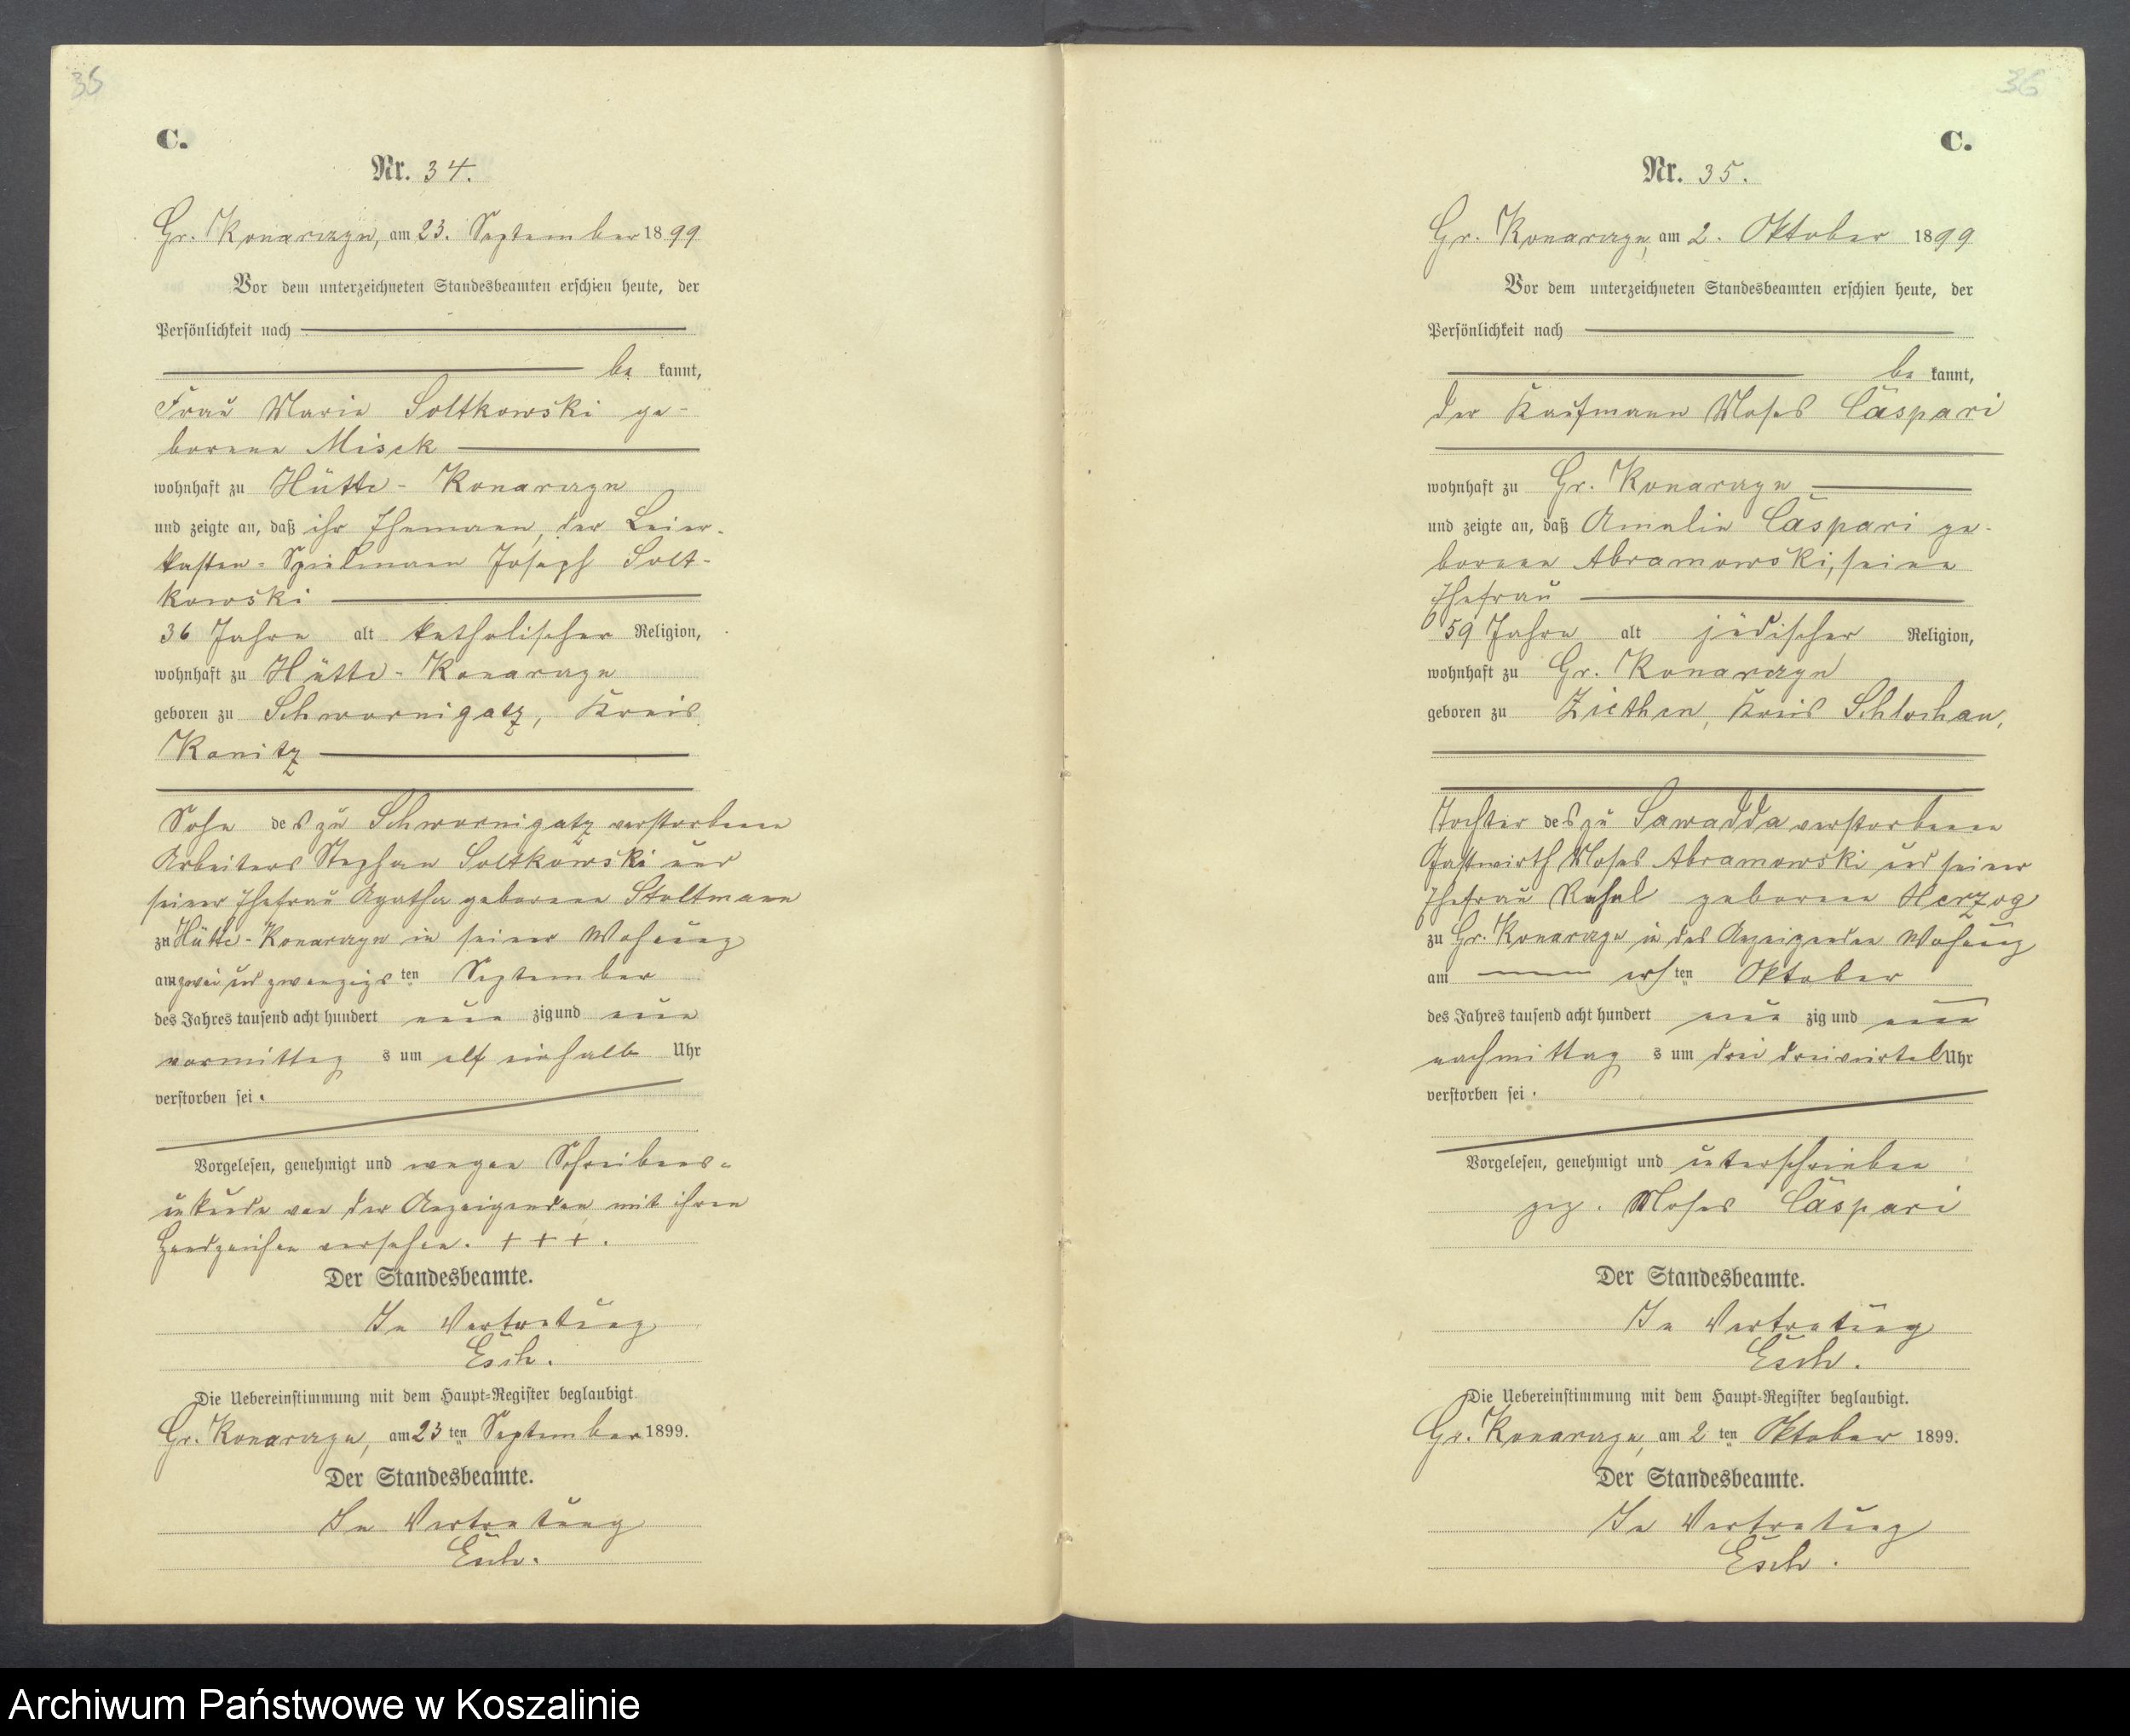 35
C.
Nr. 34.
Gr. Konarczyn, am 23. September 1899
Vor dem unterzeichneten Standesbeamten erschien heute, der
Persönlichkeit nach
be kannt,
Frau Marie Soltkowski ge-
borene Misek
wohnhaft zu Hütte-Konarczyn
und zeigte an, daß ihr Ehemann, der Leier-
kasten-Spielmann Joseph Solt-
kowski
36 Jahre alt katholischer Religion,
wohnhaft zu Hütte-Konarczyn
geboren zu Schwornigatz, Kreis
Konitz
Sohn des zu Schwornigatz verstorbenen
Arbeiters Stephan Soltkowski und
seiner Ehefrau Agatha geborene Stoltmann
zu Hütte-Konarczyn in seiner Wohnung
am zwei und zwanzigsten September
des Jahres tausend acht hundert neun zig und neun
vormittag s um elf einhalb Uhr
verstorben sei.
Vorgelesen, genehmigt und wegen Schreibens-
unkunde von der Anzeigenden mit ihren
Handzeichen versehen. + + +.
Der Standesbeamte.
In Vertretung
Esch.
Die Uebereinstimmung mit dem Haupt-Register beglaubigt
Gr. Konarczyn, am 23 ten September 1899.
Der Standesbeamte.
In Vertretung
Esch.
36
C.
Nr. 35.
Gr. Konarczyn, am 2. Oktober 1899
Vor dem unterzeichneten Standesbeamten erschien heute, der
Persönlichkeit nach
be kannt,
der Kaufmann Moses Caspari
wohnhaft zu Gr. Konarczyn
und zeigte an, daß Amalie Caspari ge-
borene Abramowski, seine
Ehefrau
59 Jahre alt jüdischer Religion,
wohnhaft zu Gr. Konarczyn
geboren zu Ziethen, Kreis Schlochau,
Tochter des zu Sawadda verstorbenen
Gastwirth Moses Abramowski und seiner
Ehefrau Rahel geborene Herzog
zu Gr. Konarczyn in des Anzeigenden Wohnung
am ersten Oktober
des Jahres tausend acht hundert neun zig und neun
nachmittag s um drei dreiviertel Uhr
verstorben sei.
Vorgelesen, genehmigt und unterschrieben
gez. Moses Caspari
Der Standesbeamte.
In Vertretung
Esch.
Die Uebereinstimmung mit dem Haupt-Register beglaubigt.
Gr. Konarczyn, am 2 ten Oktober 1899.
Der Standesbeamte.
In Vertretung
Esch.
Archiwum Państwowe w Koszalinie